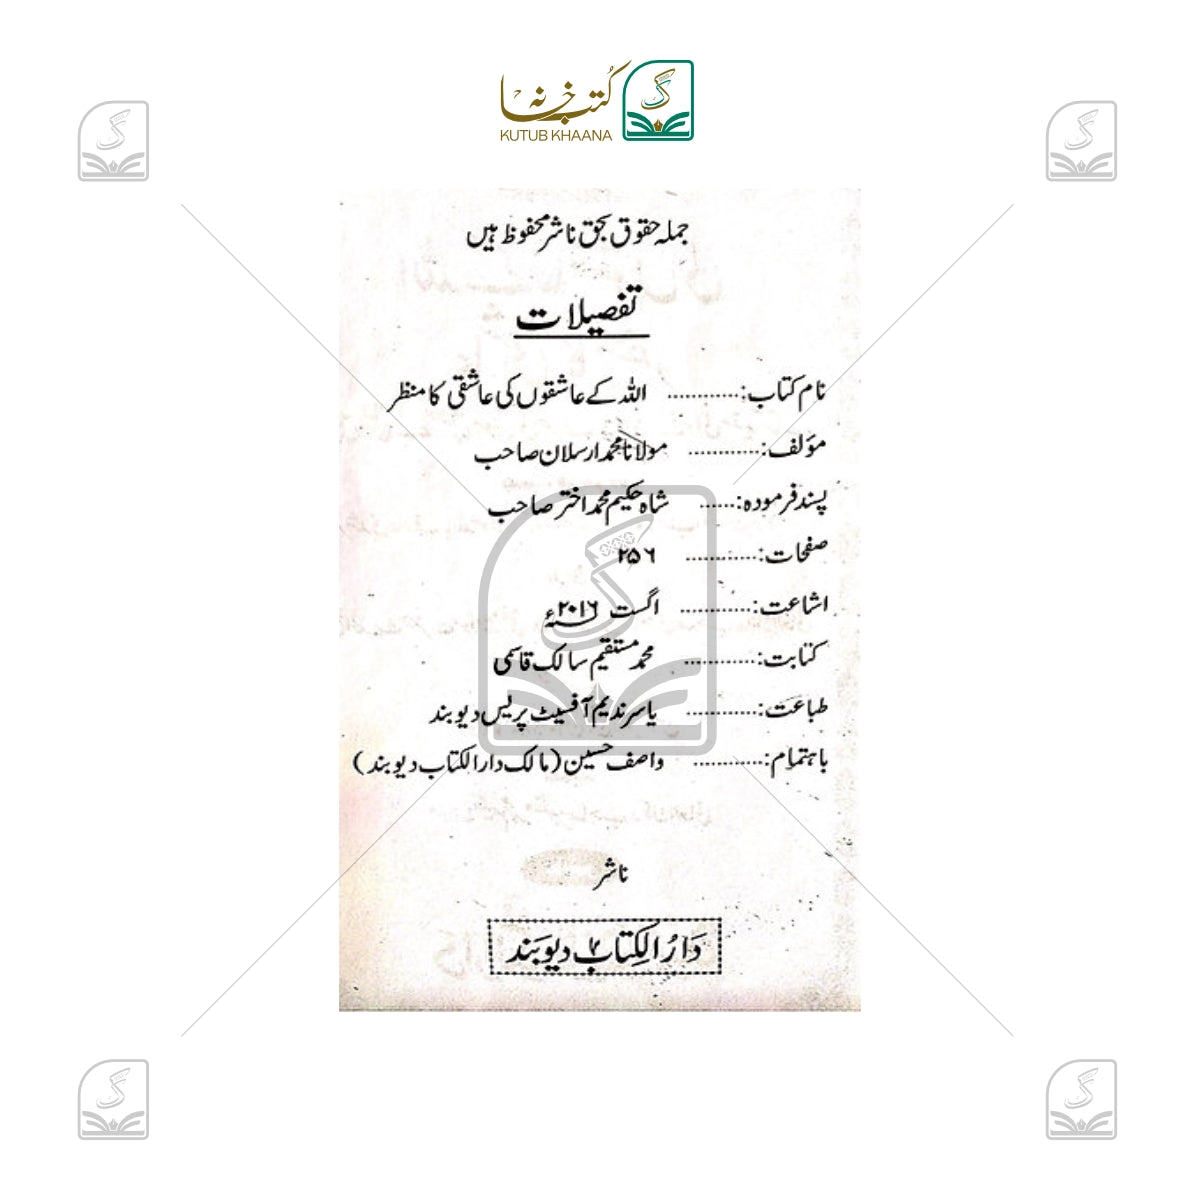 کتب خانہ
KUTUB KHAANA
جملہ حقوق بحق ناشر محفوظ ہیں
تفصیلات
نام کتاب: ............ اللہ کے عاشقوں کی عاشقی کا منظر
مؤلف: ............ مولانا محمد ارسلان صاحب
پسند فرمودہ: ...... شاہ حکیم محمد اختر صاحب
صفحات: ............ ۲۵۶
اشاعت: ............ اگست ۲۰۱۶ء
کتابت: ............ محمد مستقیم سالک قاسمی
طباعت: ............ یاسر ندیم آفسیٹ پریس دیوبند
باہتمام: ............ واصف حسین (مالک دارالکتاب دیوبند)
ناشر
دَارُالکِتاب دیوبَند